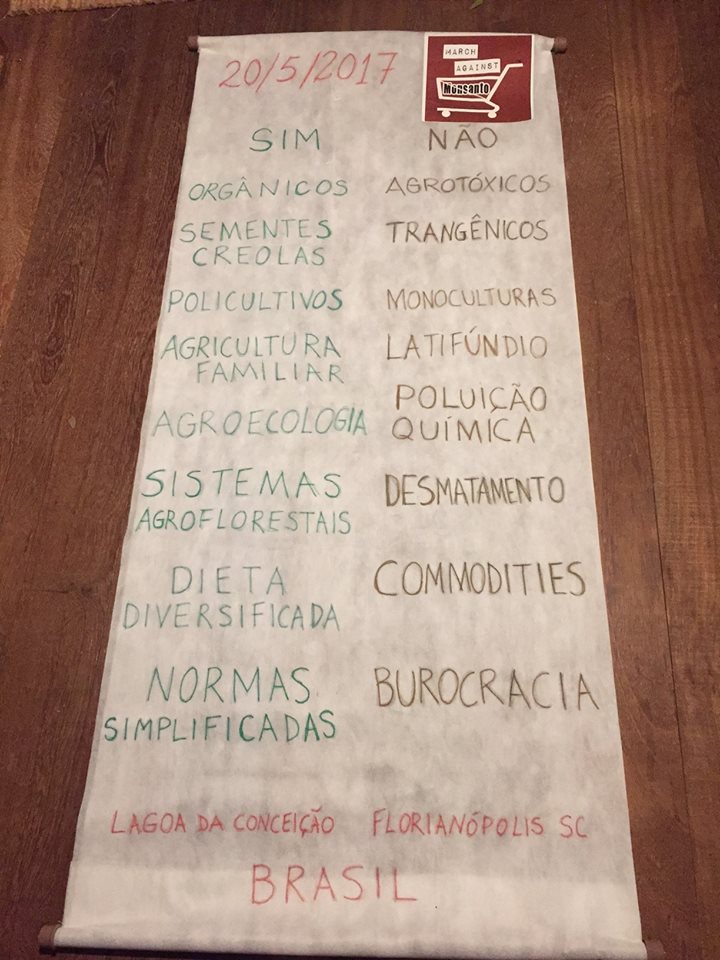 20/5/2017
MARCH
AGAINST
Monsanto
SIM NÃO
ORGÂNICOS AGROTÓXICOS
SEMENTES
CREOLAS
TRANGÊNICOS
POLICULTIVOS MONOCULTURAS
AGRICULTURA
FAMILIAR
LATIFÚNDIO
AGROECOLOGIA
POLUIÇÃO
QUÍMICA
SISTEMAS
AGROFLORESTAIS
DESMATAMENTO
DIETA
DIVERSIFICADA
COMMODITIES
NORMAS
SIMPLIFICADAS
BUROCRACIA
LAGOA DA CONCEIÇÃO FLORIANÓPOLIS SC
BRASIL